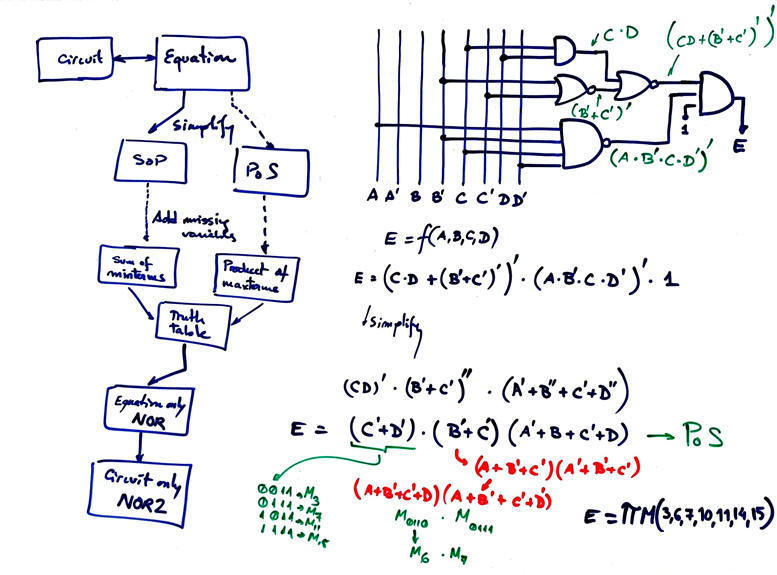 Circuit
Equation
simplify
SoP
PoS
Add missing
variables
Sum of
minterms
Product of
maxterms
Truth
table
Equation only
NOR
Circuit only
NOR2
C·D
(CD+(B'+C')')'
(B'+C')'
1
E
(A·B'·C·D')'
A A' B B' C C' D D'
E = f(A,B,C,D)
E = (C·D + (B'+C')')' · (A·B'·C·D')' · 1
simplify
(CD)' · (B'+C')'' · (A'+B''+C'+D'')
E = (C'+D') · (B'+C') (A'+B+C'+D) → PoS
(A+B'+C') (A'+B'+C')
(A+B'+C'+D) (A+B'+C'+D')
0011 → M3
0111 → M7
1011 → M11
1111 → M15
M0110 · M0111
M6 · M7
E = πM(3,6,7,10,11,14,15)